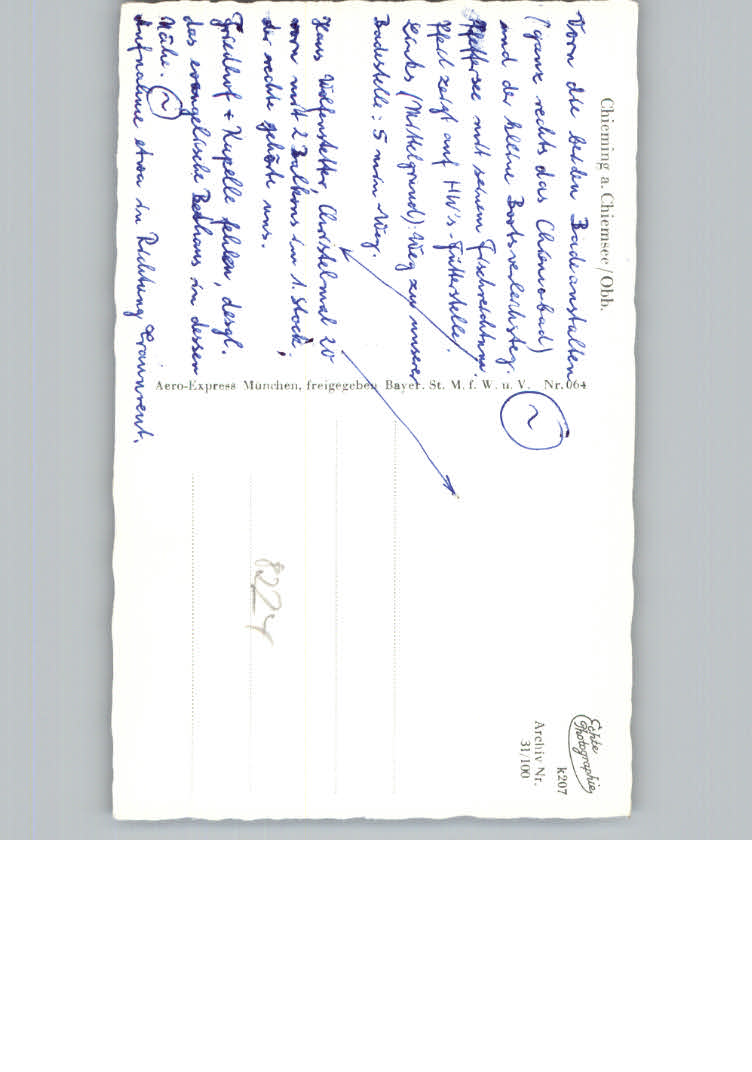 Chieming a. Chiemsee/Obb.
Vorn die beiden Badeanstalten
(ganz rechts das Chiemobad)
und der kleine Bootsverleihsteg.
Pfeffersee mit seinem
Pfeil zeigt auf HW's-Futterstelle.
Links (Mittelgrund): Weg zu unserer
Badestelle: 5 min Weg.
Haus Wolfenstetter,
vorn mit 2 Balkons im 1. Stock;
der rechte gehörte uns.
Friedhof + Kapelle fehlen, desgl.
das evangelische Bethaus in dessen
Nähe.
Aufnahme etwa in Richtung Traunreut.
Aero-Express München, freigegeben Bayer. St. M. f. W. u. V. Nr. 064
8224
Echte
Photographie
k207
Archiv Nr.
31/100